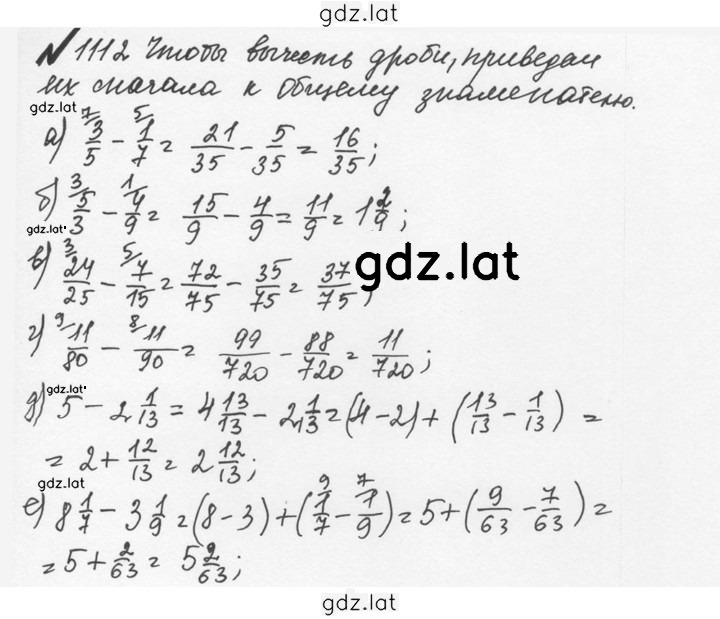 gdz.lat
№ 1112 Чтобы вычесть дроби, приведем
их сначала к общему знаменателю.
gdz.lat
а) ⁷/3/5 − ⁵/1/7 = 21/35 − 5/35 = 16/35;
б) ³/5/3 − ¹/4/9 = 15/9 − 4/9 = 11/9 = 1 2/9;
gdz.lat
в) ³/24/25 − ⁵/7/15 = 72/75 − 35/75 = 37/75;
gdz.lat
г) ⁹/11/80 − ⁸/11/90 = 99/720 − 88/720 = 11/720;
gdz.lat
д) 5 − 2 1/13 = 4 13/13 − 2 1/13 = (4 − 2) + (13/13 − 1/13) =
= 2 + 12/13 = 2 12/13;
gdz.lat
е) 8 1/7 − 3 1/9 = (8 − 3) + (⁹/1/7 − ⁷/1/9) = 5 + (9/63 − 7/63) =
= 5 + 2/63 = 5 2/63;
gdz.lat